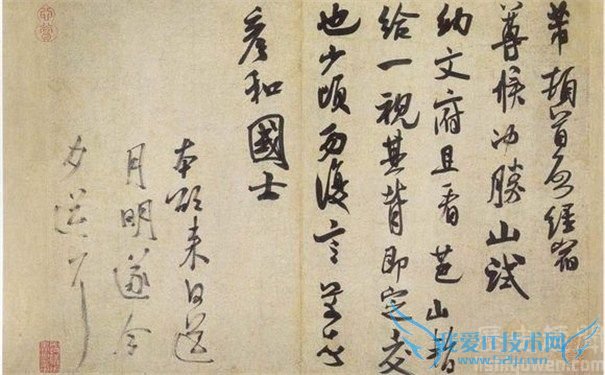 芾頓首啓經宿
尊候冲勝山試
納文府且看芭山暫
給一視其背即定交
也少頃勿復言芾頓首
彥和國士
本欲來日送
月明遂今
夕送耳
我爱IT技术网
lishiquwen.com